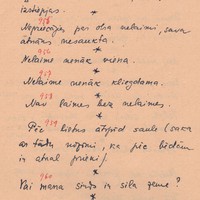 izstiepjas.
*
955
Nepriecājies par otra nelaimi, sava
atnāks nesaukta.
*
956
Nelaime nenāk viena.
*
957
Nelaime nenāk kliegdama.
*
958
Nav laimes bez nelaimes.
*
959
Pēc lietus atspīd saule (saka
ar tādu nozīmi, ka pēc bēdām
ir atkal prieki).
*
960
Vai mana sirds ir sila zeme?
*